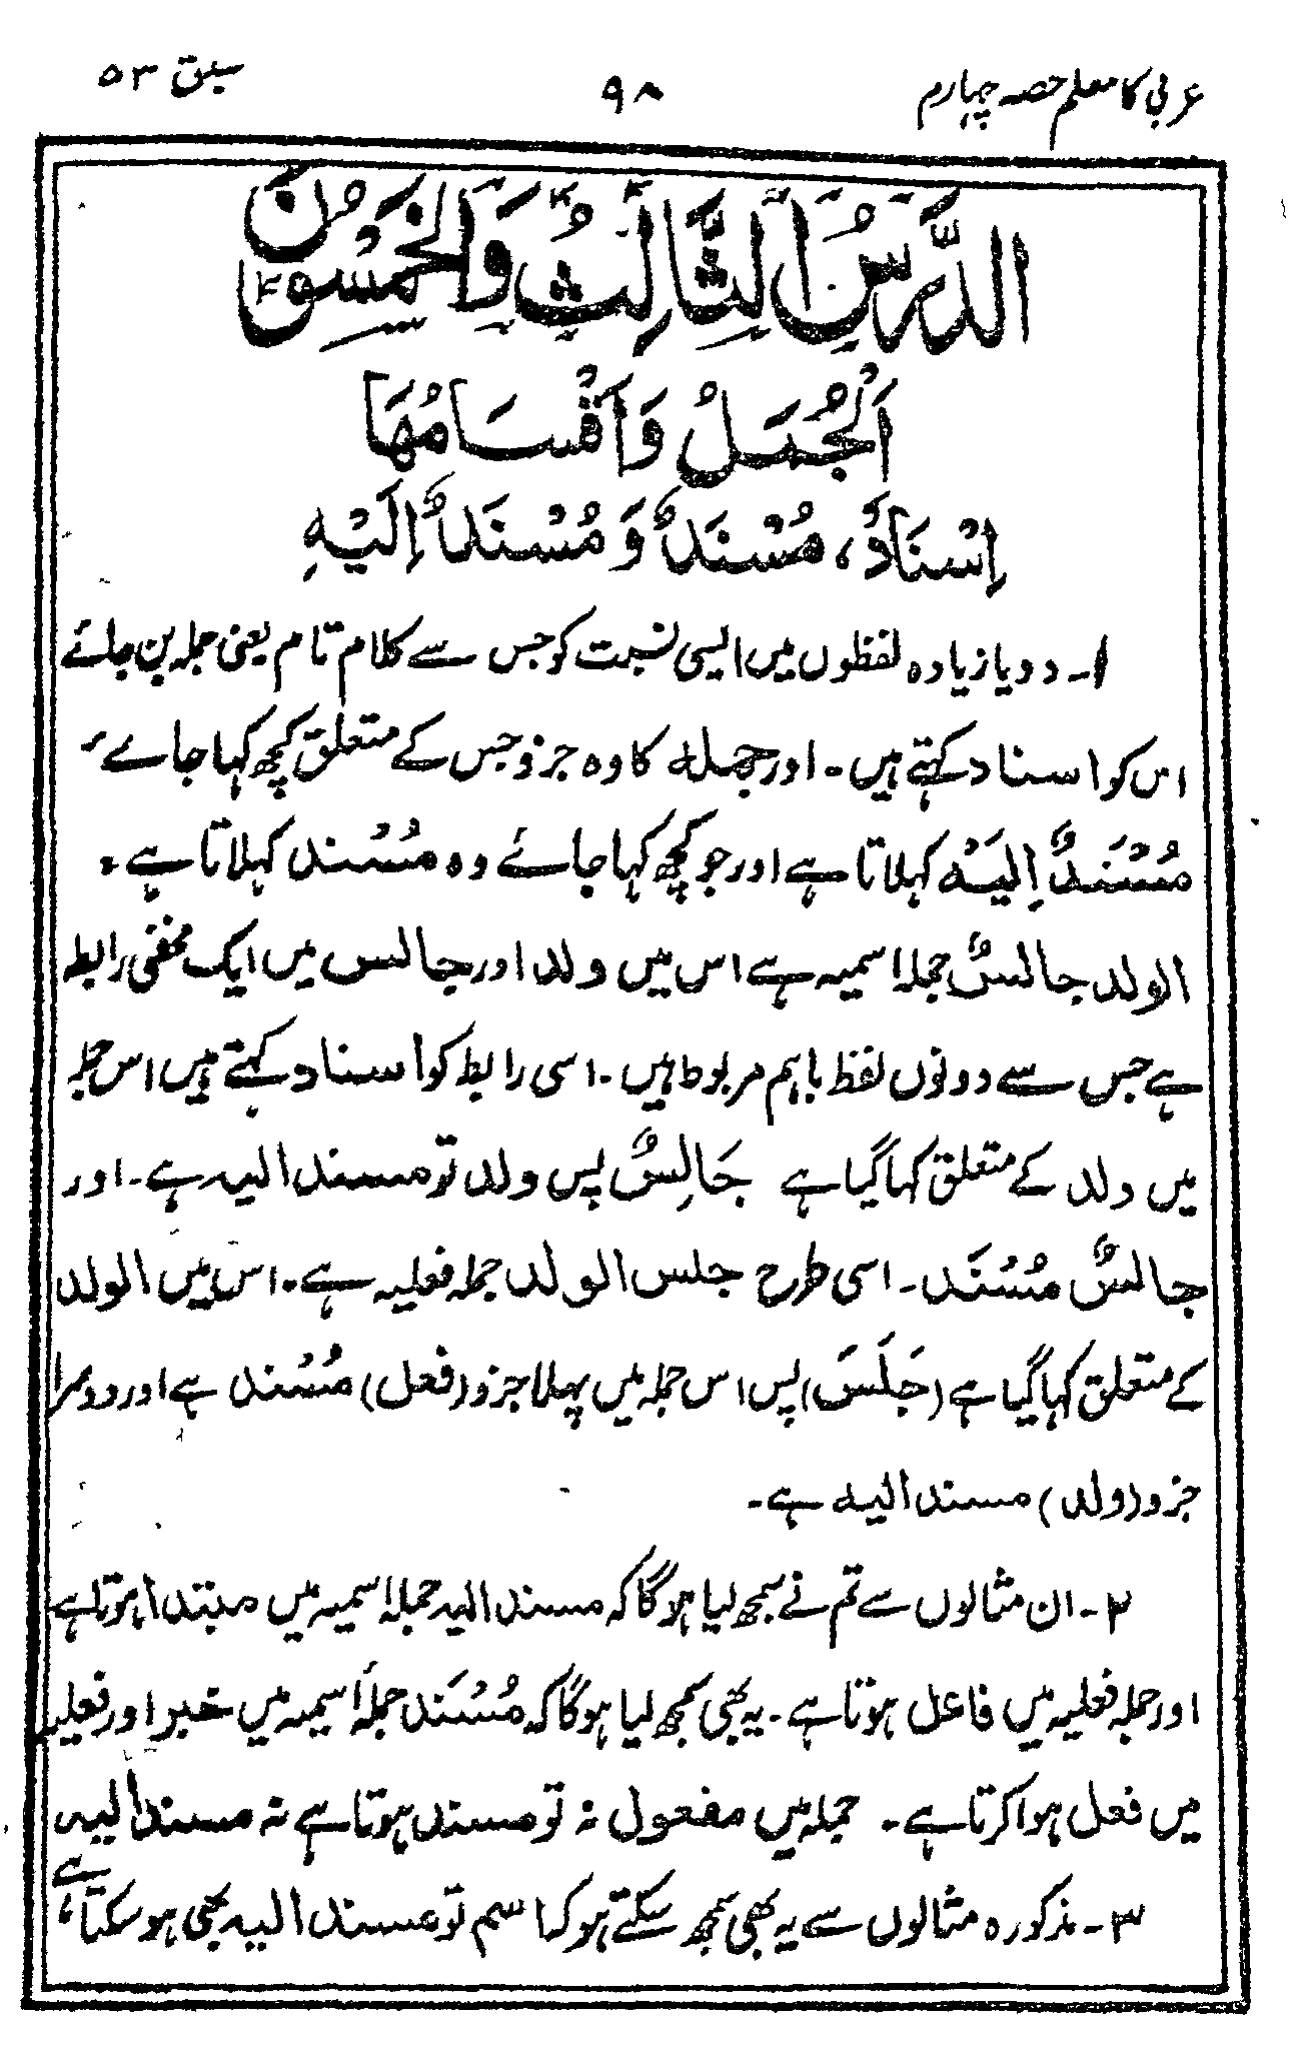 عربی کا معلم حصہ چہارم ۹۸ سبق ۵۳
الدَّرْسُ الثَّالِثُ وَالْخَمْسُوْنَ
اَلْجُمَلُ وَاَقْسَامُهَا
اِسْنَادٌ، مُسْنَدٌ وَ مُسْنَدٌ اِلَيْهِ
۱۔ دو یا زیادہ لفظوں میں ایسی نسبت کو جس سے کلام تام یعنی جملہ بن جائے
اس کو اسناد کہتے ہیں۔ اور جملہ کا وہ جزو جس کے متعلق کچھ کہا جاے
مُسْنَدٌ اِلَيْه کہلاتا ہے اور جو کچھ کہا جائے وہ مُسْند کہلاتا ہے۔
الولد جالسٌ جملہ اسمیہ ہے اس میں ولد اور جالس میں ایک مخفی رابطہ
ہے جس سے دونوں لفظ باہم مربوط ہیں۔ اسی رابطہ کو اسناد کہتے ہیں اس جملہ
میں ولد کے متعلق کہا گیا ہے جَالِسٌ پس ولد تو مسند الیہ ہے۔ اور
جالسٌ مُسْنَد۔ اسی طرح جلس الولد جملہ فعلیہ ہے۔ اس میں الولد
کے متعلق کہا گیا ہے (جَلَسَ) پس اس جملہ میں پہلا جزو (فعل) مُسْند ہے اور دوسرا
جزو (ولد) مسند الیہ ہے۔
۲۔ ان مثالوں سے تم نے سمجھ لیا ہوگا کہ مسند الیہ جملہ اسمیہ میں مبتدا ہوتا ہے
اور جملہ فعلیہ میں فاعل ہوتا ہے۔ یہ بھی سمجھ لیا ہوگا کہ مُسْنَد جملہ اسمیہ میں خبر اور فعلیہ
میں فعل ہوا کرتا ہے۔ جملہ میں مفعول نہ تو مسند ہوتا ہے نہ مسند الیہ
۳۔ مذکورہ مثالوں سے یہ بھی سمجھ سکتے ہو کہ اسم تو مسند الیہ بھی ہو سکتا ہے،